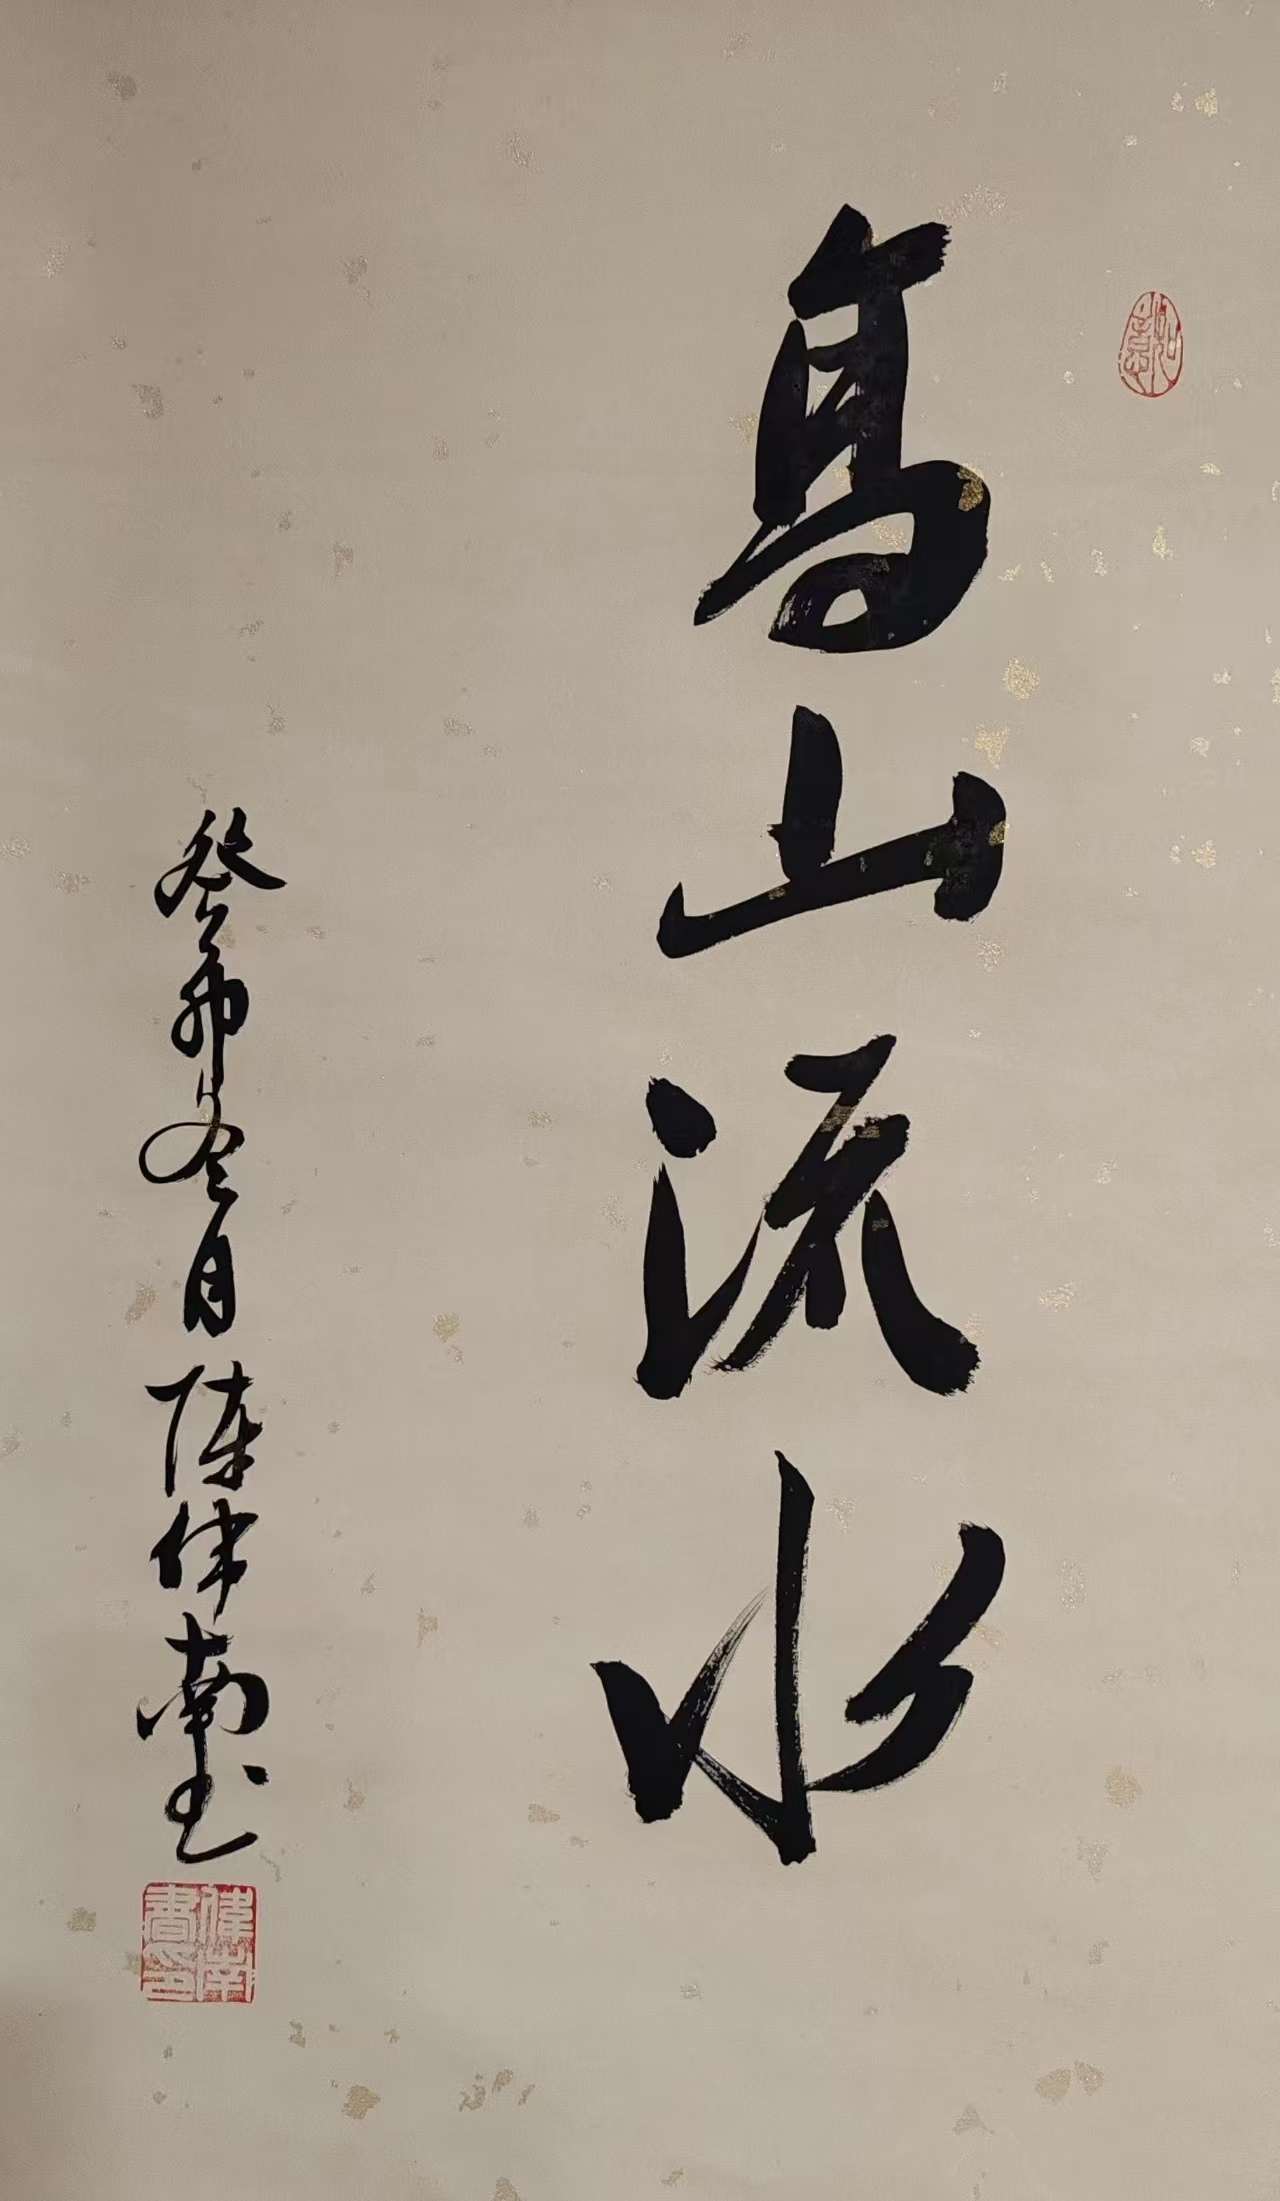 高山流水
癸卯冬月陈伟南书
偉南書印